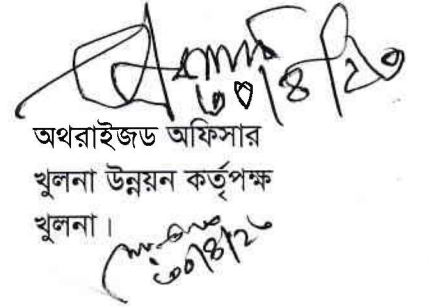 ৩০/৪/২৩
অথরাইজড অফিসার
খুলনা উন্নয়ন কর্তৃপক্ষ
খুলনা।